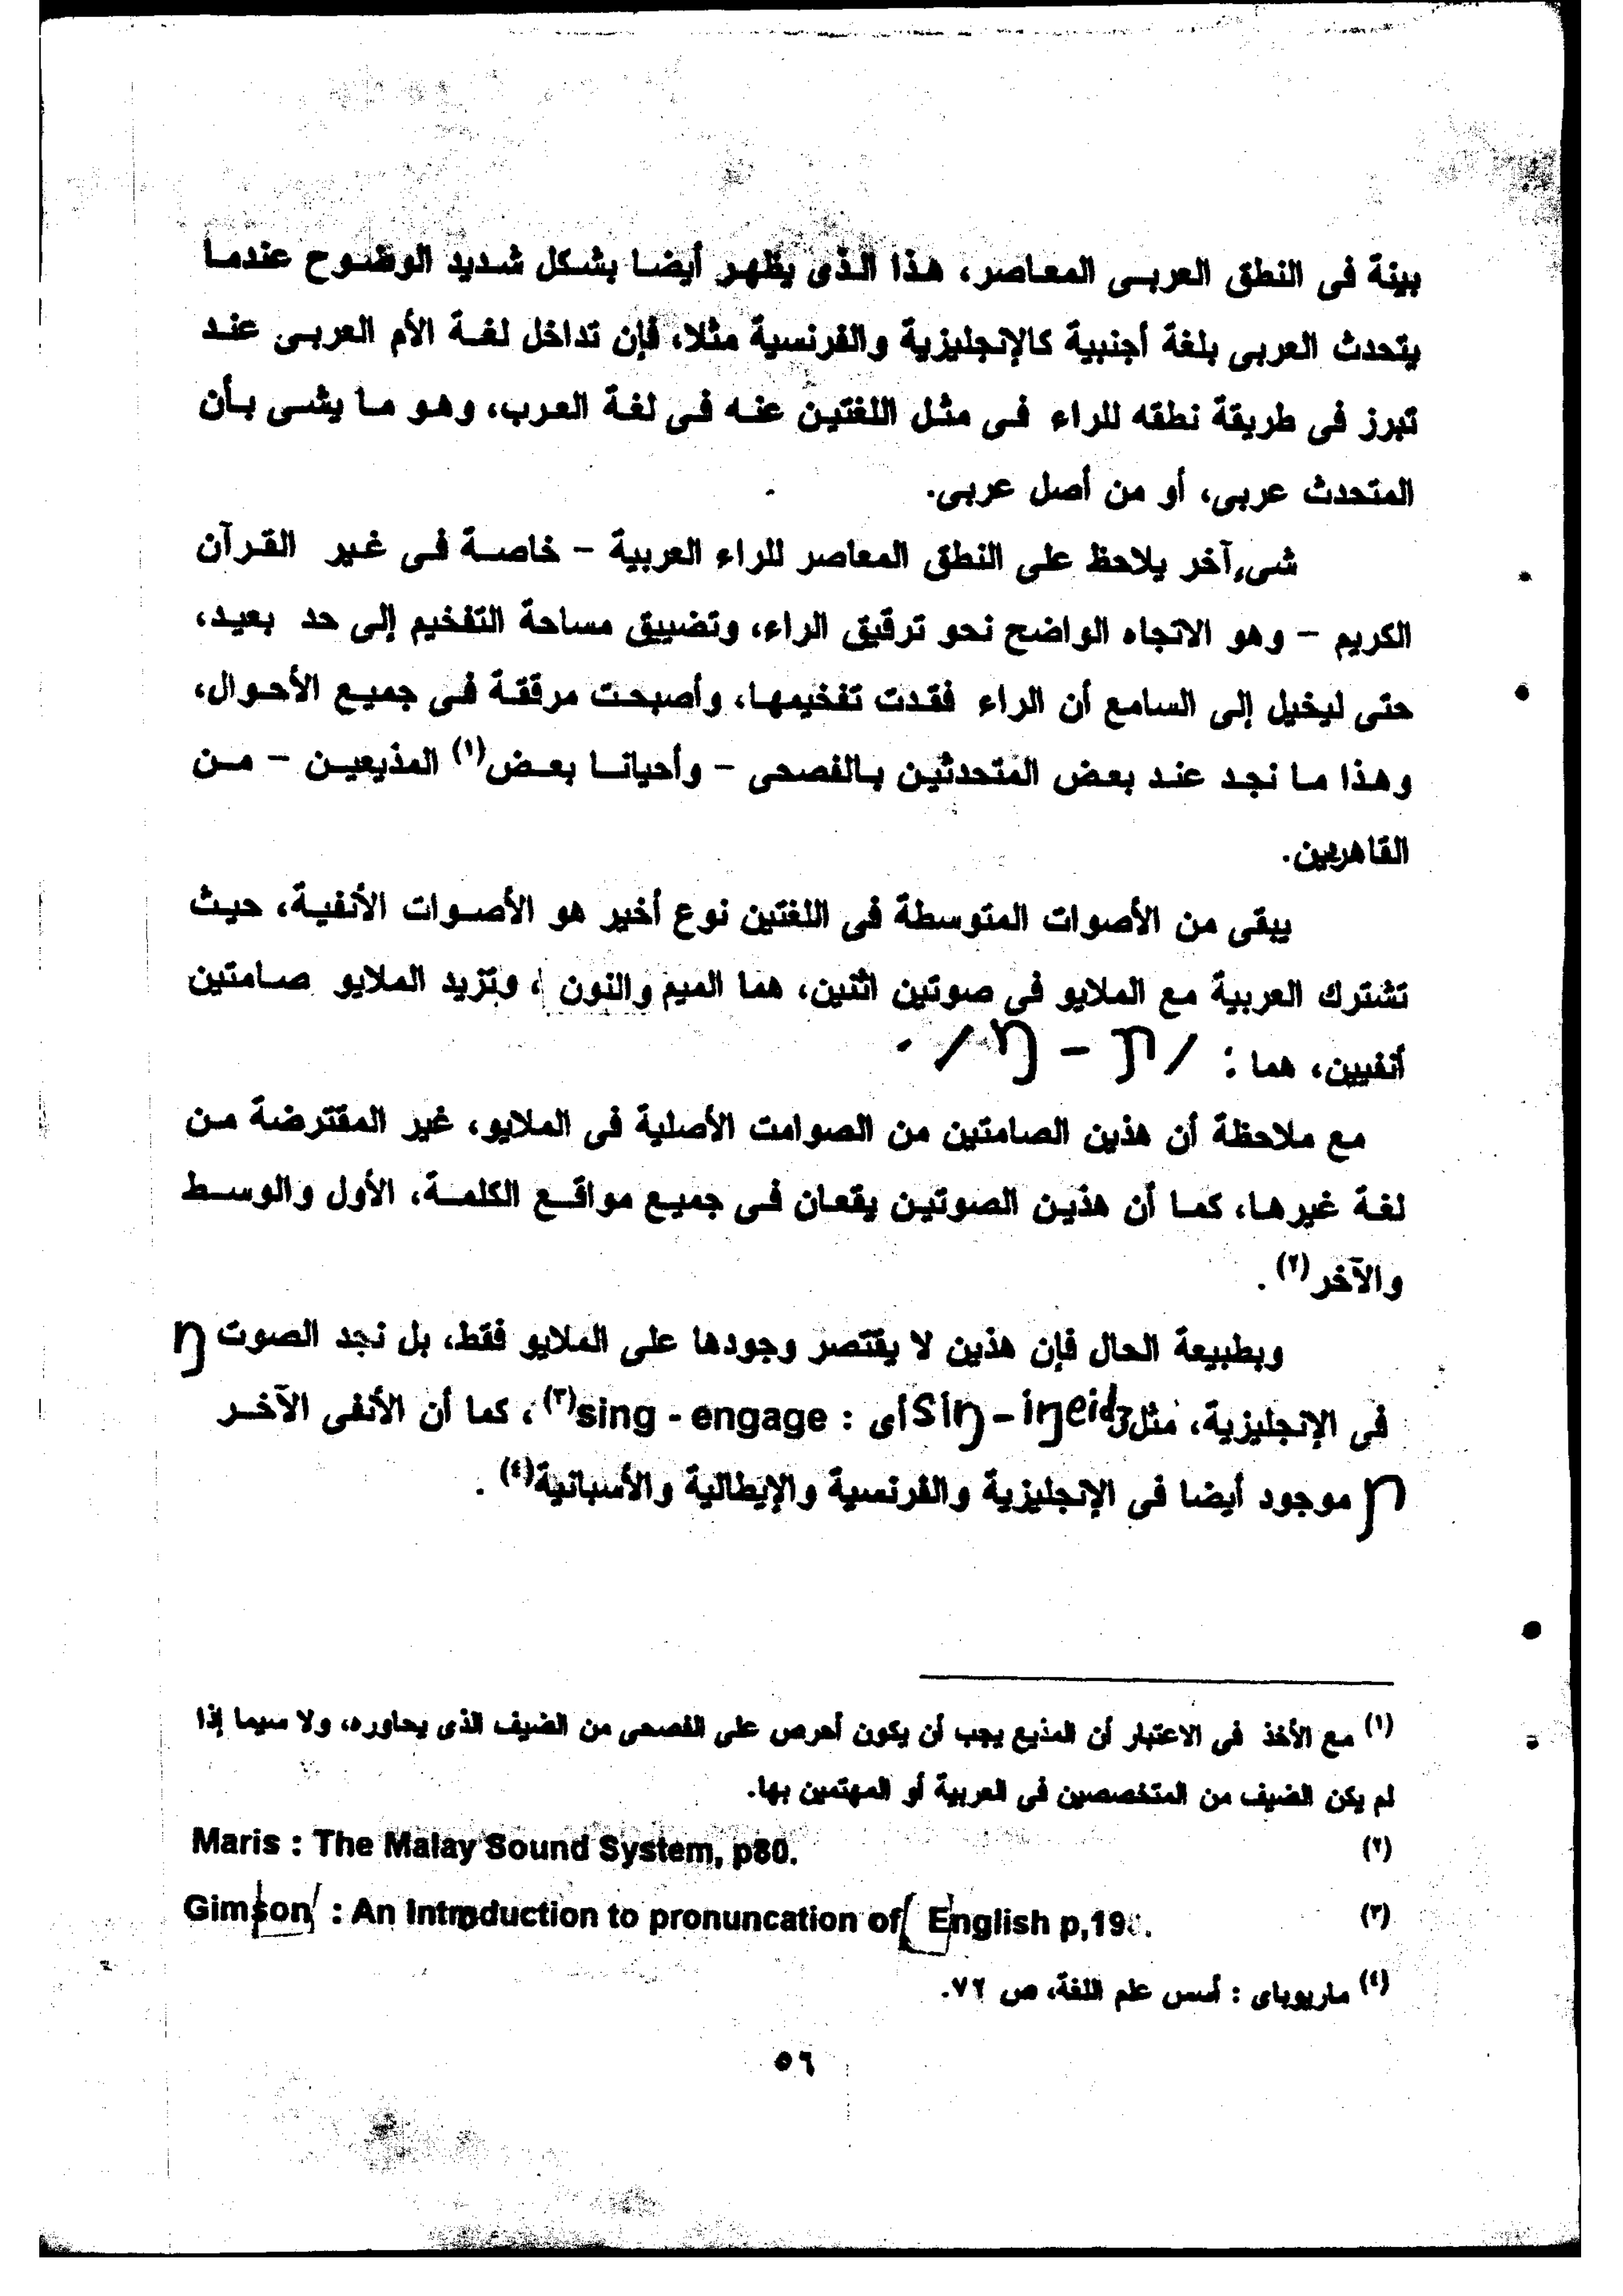 بينة فى النطق العربى المعاصر، هذا الذى يظهر أيضا بشكل شديد الوضوح عندما
يتحدث العربى بلغة أجنبية كالإنجليزية والفرنسية مثلا، فإن تداخل لغة الأم العربى عند
تبرز فى طريقة نطقه للراء فى مثل اللغتين عنه فى لغة العرب، وهو ما يشى بأن
المتحدث عربى، أو من أصل عربى.
شىء آخر يلاحظ على النطق المعاصر للراء العربية – خاصة فى غير القرآن
الكريم – وهو الاتجاه الواضح نحو ترقيق الراء، وتضييق مساحة التفخيم إلى حد بعيد،
حتى ليخيل إلى السامع أن الراء فقدت تفخيمها، وأصبحت مرققة فى جميع الأحوال،
وهذا ما نجد عند بعض المتحدثين بالفصحى – وأحيانا بعض(١) المذيعين – من
القاهريين.
يبقى من الأصوات المتوسطة فى اللغتين نوع أخير هو الأصوات الأنفية، حيث
تشترك العربية مع الملايو فى صوتين اثنين، هما الميم والنون ، وتزيد الملايو صامتين
أنفيين، هما : / ɲ – ŋ / .
مع ملاحظة أن هذين الصامتين من الصوامت الأصلية فى الملايو، غير المقترضة من
لغة غيرها، كما أن هذين الصوتين يقعان فى جميع مواقع الكلمة، الأول والوسط
والآخر(٢) .
وبطبيعة الحال فإن هذين لا يقتصر وجودها على الملايو فقط، بل نجد الصوت ŋ
فى الإنجليزية، مثل siŋ – iŋeidʒ أى : sing - engage(٣) ، كما أن الأنفى الآخر
ɲ موجود أيضا فى الإنجليزية والفرنسية والإيطالية والأسبانية(٤) .
(١) مع الأخذ فى الاعتبار أن المذيع يجب أن يكون أحرص على الفصحى من الضيف الذى يحاوره، ولا سيما إذا
لم يكن الضيف من المتخصصين فى العربية أو المهتمين بها.
(٢) Maris : The Malay Sound System, p80.
(٣) Gimson : An Introduction to pronuncation of English p,19
(٤) ماريوباى : أسس علم اللغة، ص ٧٢.
٥٦